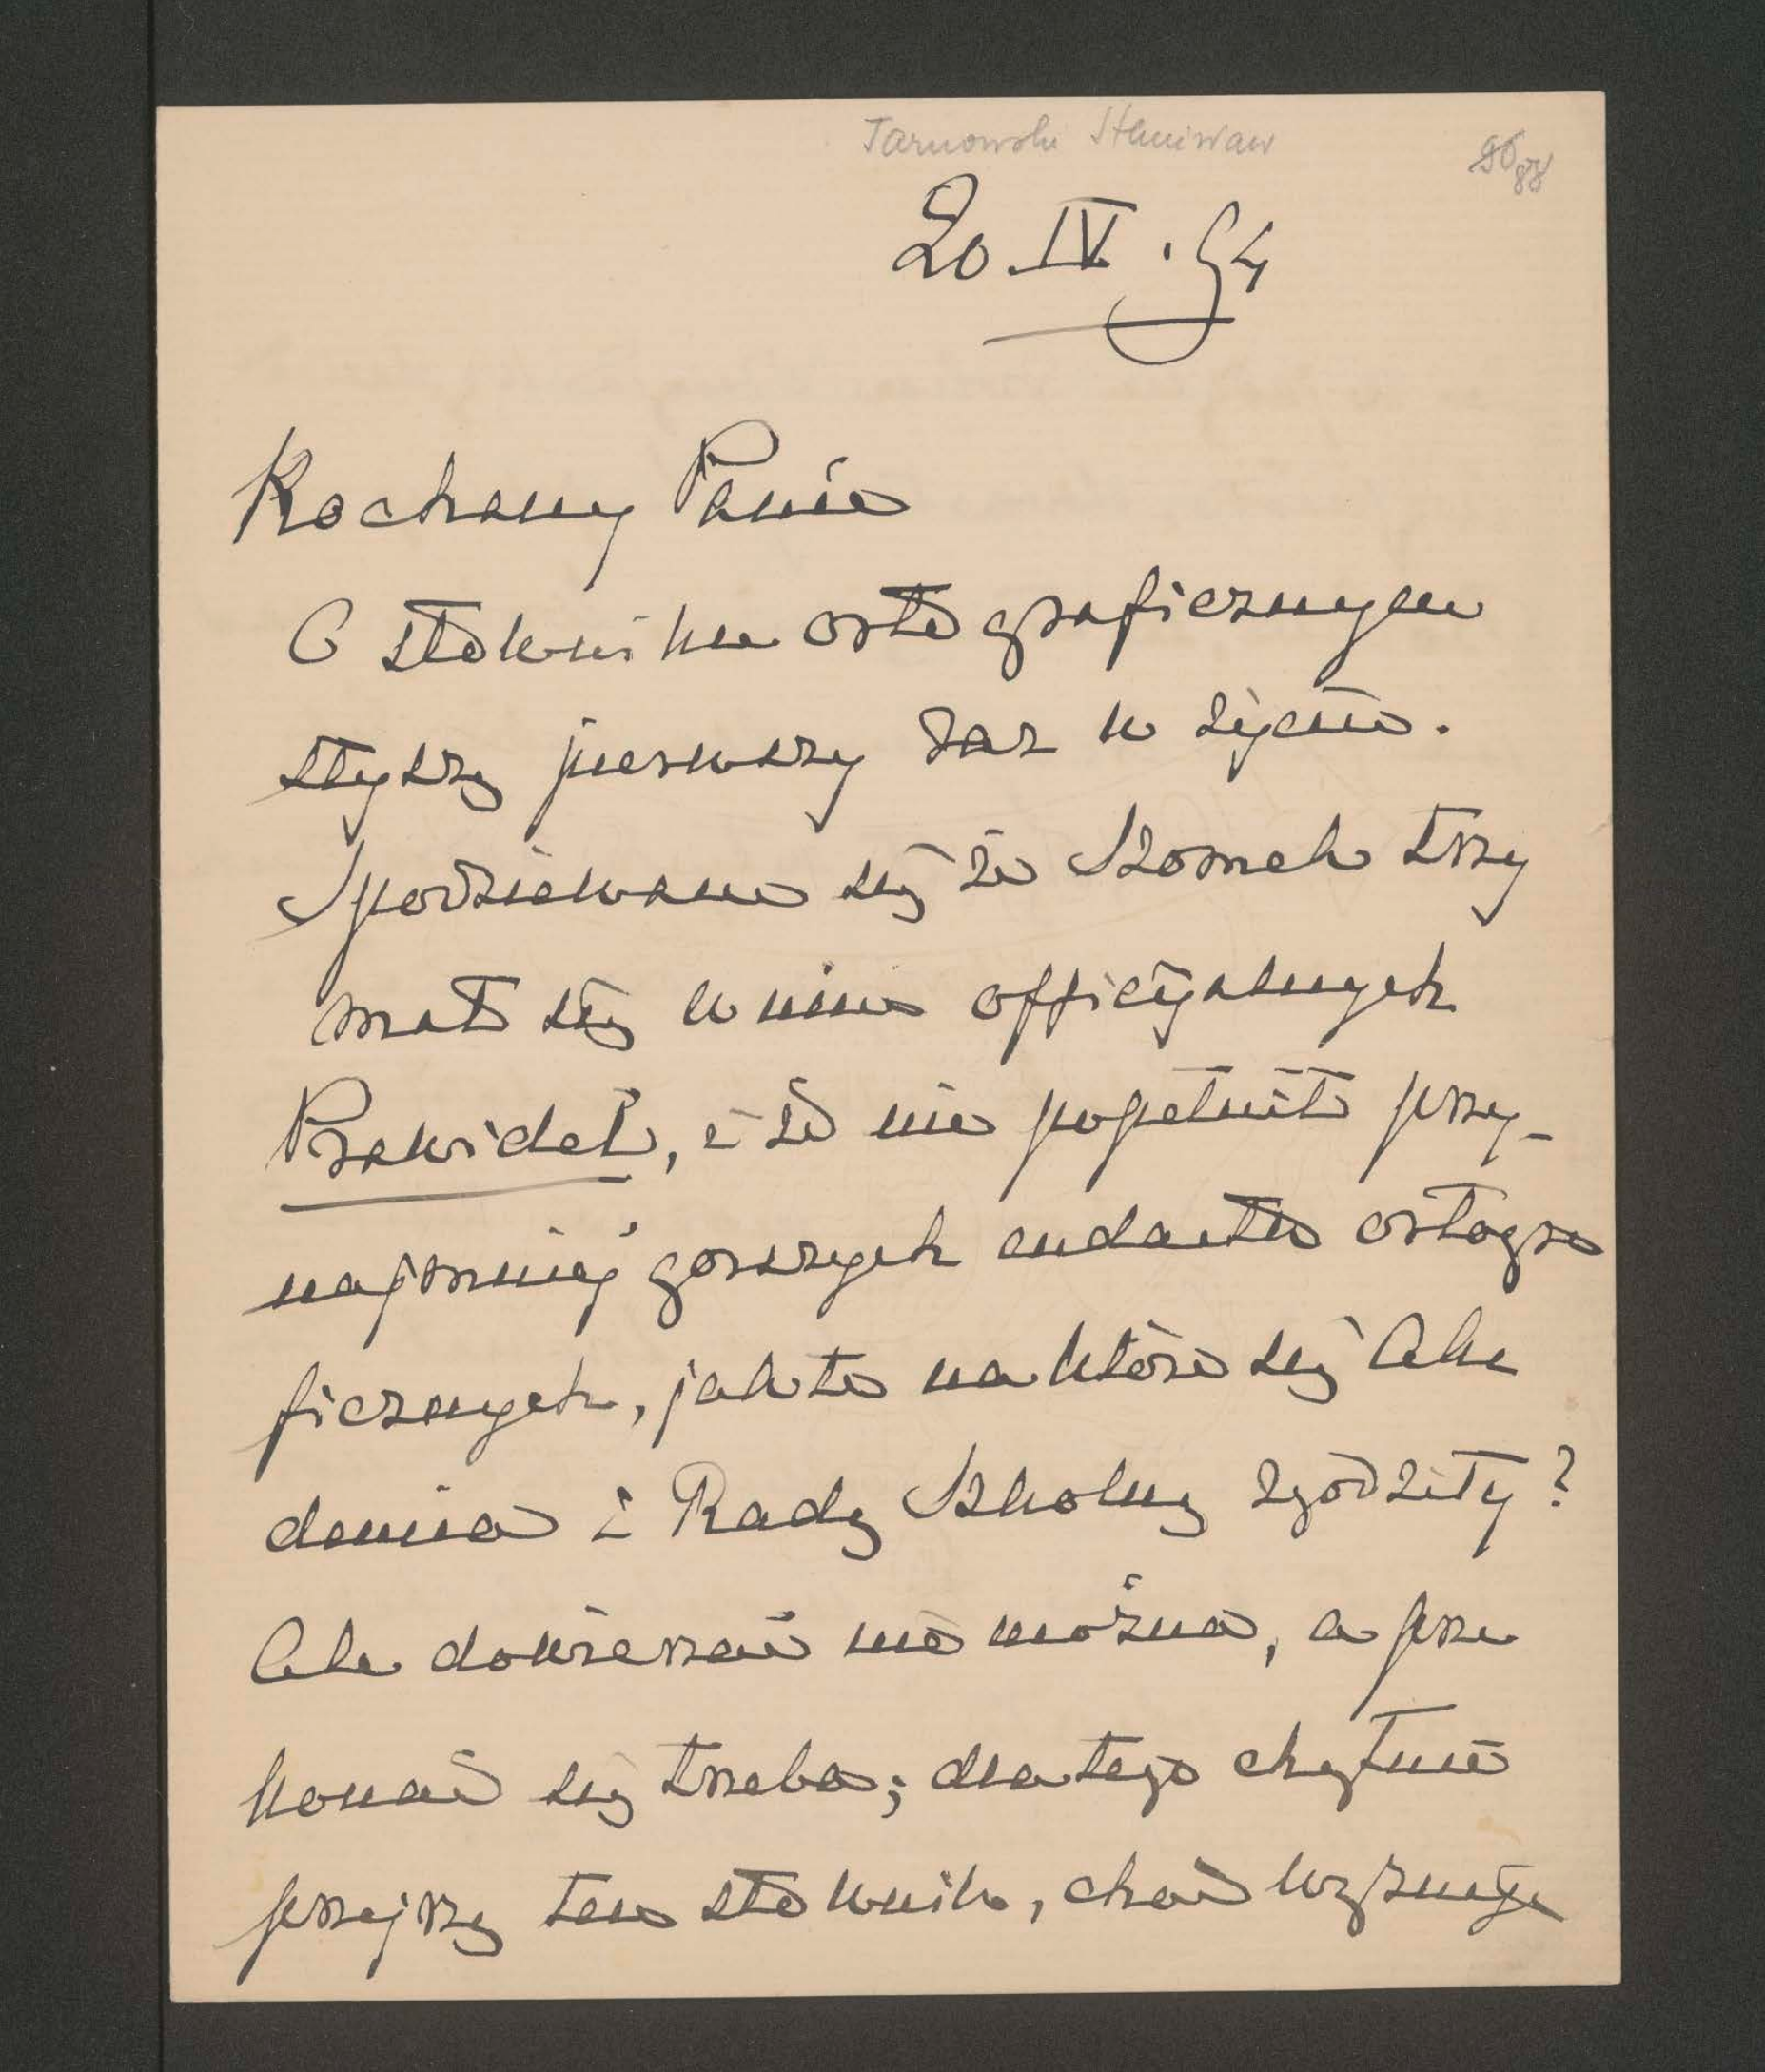 Tarnowski Stanisław
88
20. IV. 94
Kochany Panie
O słowniku ortograficznym
słyszę pierwszy raz w życiu.
Spodziewam się że trzy
mał się w nim officyalnych
Prawideł, i że nie popełnił przy-
najmniej gorszych ortogra
ficznych, jak te na które się Aka
demia i Rady Szkolny zgodziły?
Ale dowierzać nie można, a prze
konać się trzeba; dlatego chętnie
przejrzę ten słownik, choć